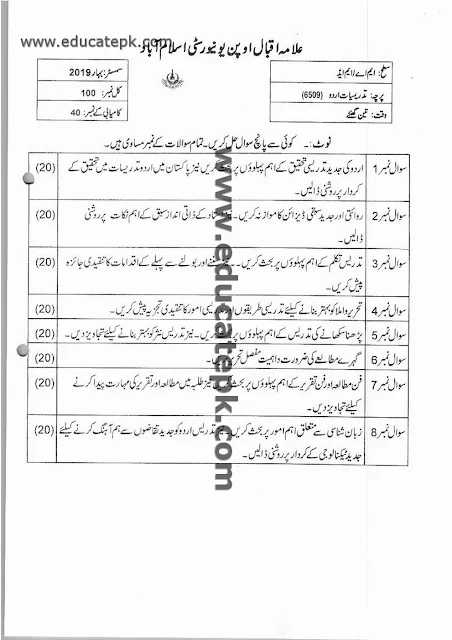 www.educatepk.com
علامہ اقبال اوپن یونیورسٹی اسلام آباد
سطح: ایم اے/ ایم ایڈ
پرچہ: تدریسیات اردو (6509)
وقت: تین گھنٹے
سمسٹر: بہار 2019
کل نمبر: 100
کامیابی کے نمبر: 40
نوٹ:۔ کوئی سے پانچ سوال حل کریں۔ تمام سوالات کے نمبر مساوی ہیں۔
سوال نمبر 1 اردو کی جدید تدریسی تحقیق کے اہم پہلوؤں پر بحث کریں نیز پاکستان میں اردو تدریسات میں تحقیق کے (20)
کردار پر روشنی ڈالیں۔
سوال نمبر 2 روایتی اور جدید سبقی ڈیزائن کا موازنہ کریں۔ کے ذاتی انداز سبق کے اہم نکات پر روشنی (20)
ڈالیں۔
سوال نمبر 3 تدریس تکلم کے اہم پہلوؤں پر بحث کریں۔ سننے اور بولنے سے پہلے کے اقدامات کا تنقیدی جائزہ (20)
پیش کریں۔
سوال نمبر 4 تحریر و املا کو بہتر بنانے کیلئے تدریسی طریقوں اور تدریسی امور کا تنقیدی تجزیہ پیش کریں۔ (20)
سوال نمبر 5 پڑھنا سکھانے کی تدریس کے اہم پہلوؤں پر بحث کریں۔ نیز تدریس نثر کو بہتر بنانے کیلئے تجاویز دیں۔ (20)
سوال نمبر 6 گہرے مطالعے کی ضرورت و اہمیت مفصل تحریر کریں۔ (20)
سوال نمبر 7 فن مطالعہ اور فن تقریر کے اہم پہلوؤں پر بحث کریں نیز طلبہ میں مطالعہ اور تقریر کی مہارت پیدا کرنے (20)
کیلئے تجاویز دیں۔
سوال نمبر 8 زبان شناسی سے متعلق اہم امور پر بحث کریں۔ نیز تدریس اردو کو جدید تقاضوں سے ہم آہنگ کرنے کیلئے (20)
جدید ٹیکنالوجی کے کردار پر روشنی ڈالیں۔
www.educatepk.com